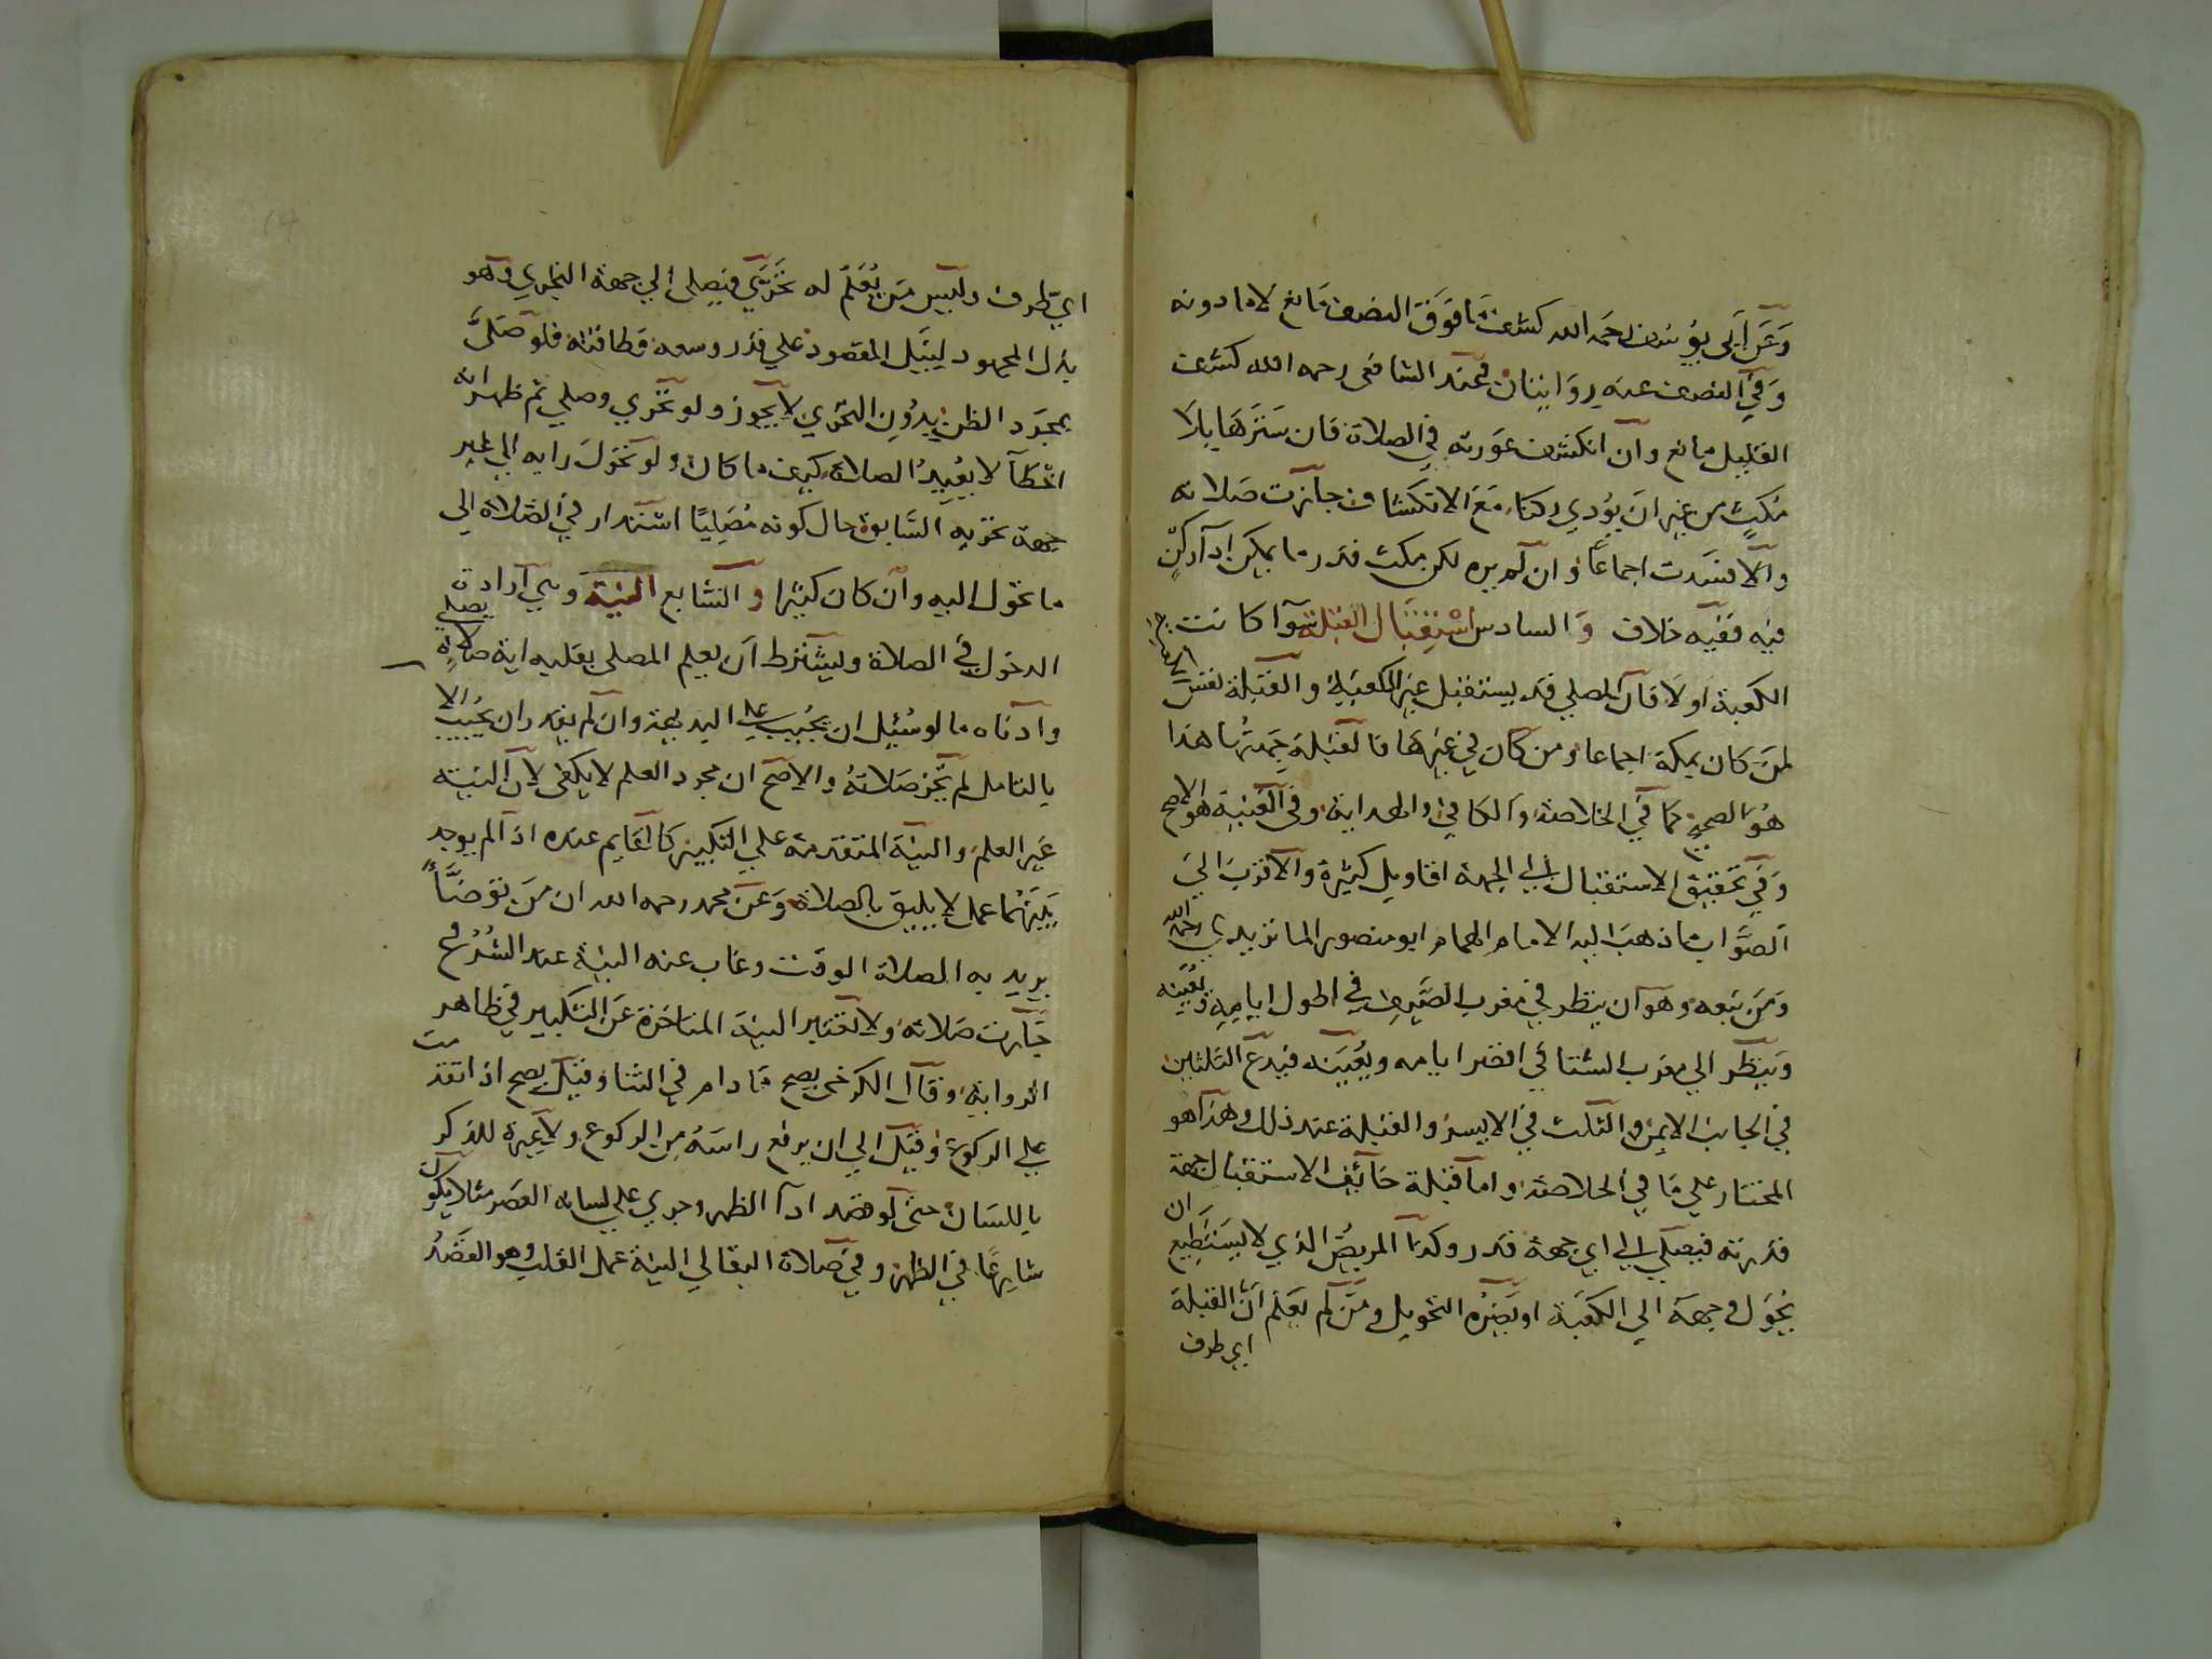 وَعَن أبى يوسف رحمَه الله كشف مَا فوَق النصف مَانع لا ما دونه
وَفي النصف عنه روَايتان وعند الشافعى رحمه الله كشف
القليل مانع وان انكشف عوَرته في الصلاة فان سَترهَا بلا
مُكثٍ من غير ان يؤدي ركنا مَعَ الانكشاف جازت صَلاته
والا فسَدت اجماعا وان لم يره لكن مكث قدر ما يمكن ادآ ركنٍ
فيه ففيه خلاف وَالسادس اسْتِقبَال القبلة سَوآ كانت
الكعبة اولا فان المصلي قد يستقبل غير الكعبة والقبلة نفس
لمن كان بمكة اجماعا ومن كان في غيرهَا فالقبلة جهتُها هذا
هُوَ الصحيح كما في الخلاصة والكافي والهداية وفى القنية هو الاصح
وَفي تحقيق الاستقبال الي الجهة اقاويل كثيرة والاقرب الي
الصَّواب ما ذهبَ اليه الامام الهمام ابو منصور الماتريدي رحمه الله
وَمَن تبعه وهو ان ينظر في مغرب الصَّيف في اطول ايامه فيُعيّنه
وَينظر الي مغرب الشتا في اقصر ايامه ويُعَيّنه فيدع الثلثين
في الجانب الايمن والثلث في الايسر والقبلة عند ذلك وهذا هو
المختار علي مَا في الخلاصة واما قبلة خائف الاستقبال جهة
قدرته فيصلي الي اي جهة قدر وكذا المريض الذي لا يستطيع ان
يُحوّل وجهه الي الكعبَة او يضره التحويل ومَن لم يعلم ان القبلة
اي طرف
اي طرف وليس مَن يُعلم له تحرّي فيصلى الي جهة التحري وهو
بذل المجهود لنيل المقصود علي قدر وسعه وطاقته فلو صَلىّ
بمجرّد الظن بدُون التحري لا يجوز ولو تحري وصلي ثم ظهر انه
اخطآ لا يُعيدُ الصلاة كيف ما كان ولو تحوّل رايه الي غير
جهة تحريه السَّابق حال كونه مُصَليًا استدار في الصَّلاة الي
ما تحول اليه وان كان كثيرا والسابع النية وهي ارادة
الدخول في الصلاة ويشترط ان يعلم المصلى بقلبه اية صلاةٍ يصلي
وادناه ما لو سُئِل ان يُجيب علي البديهة وان لم يقدر ان يجُيب الا
بالتامل لم تجُز صَلاته والاصح ان مجرد العلم لا يكفى لان النية
غير العلم والنية المتقدمة علي التكبير كالقايم عنده اذا لم يوجد
بَينَهُما عمل لا يليق بالصلاة وَعَن محمد رحمه الله ان مَن توضَّأ
يريد به الصلاة الوقت وغاب عنه النية عند الشُرُوع
جازت صَلاته ولا تعتبر النية المتاخرة عَن التكبير في ظاهر
الروَاية وقال الكرخى يصح مَا دام في الثنا وقيل يصح اذا تقدمت
علي الركوع وقيل الي ان يرفع راسَهُ من الركوع ولا عِبرة للذكر
باللسَان حتى لو قصد ادآ الظهر وجري علي لسانه العصَر مثلا يكون
شارِعًا في الظهر وفي صَلاة البقالي النية عمل القلب وهو القصَدُ